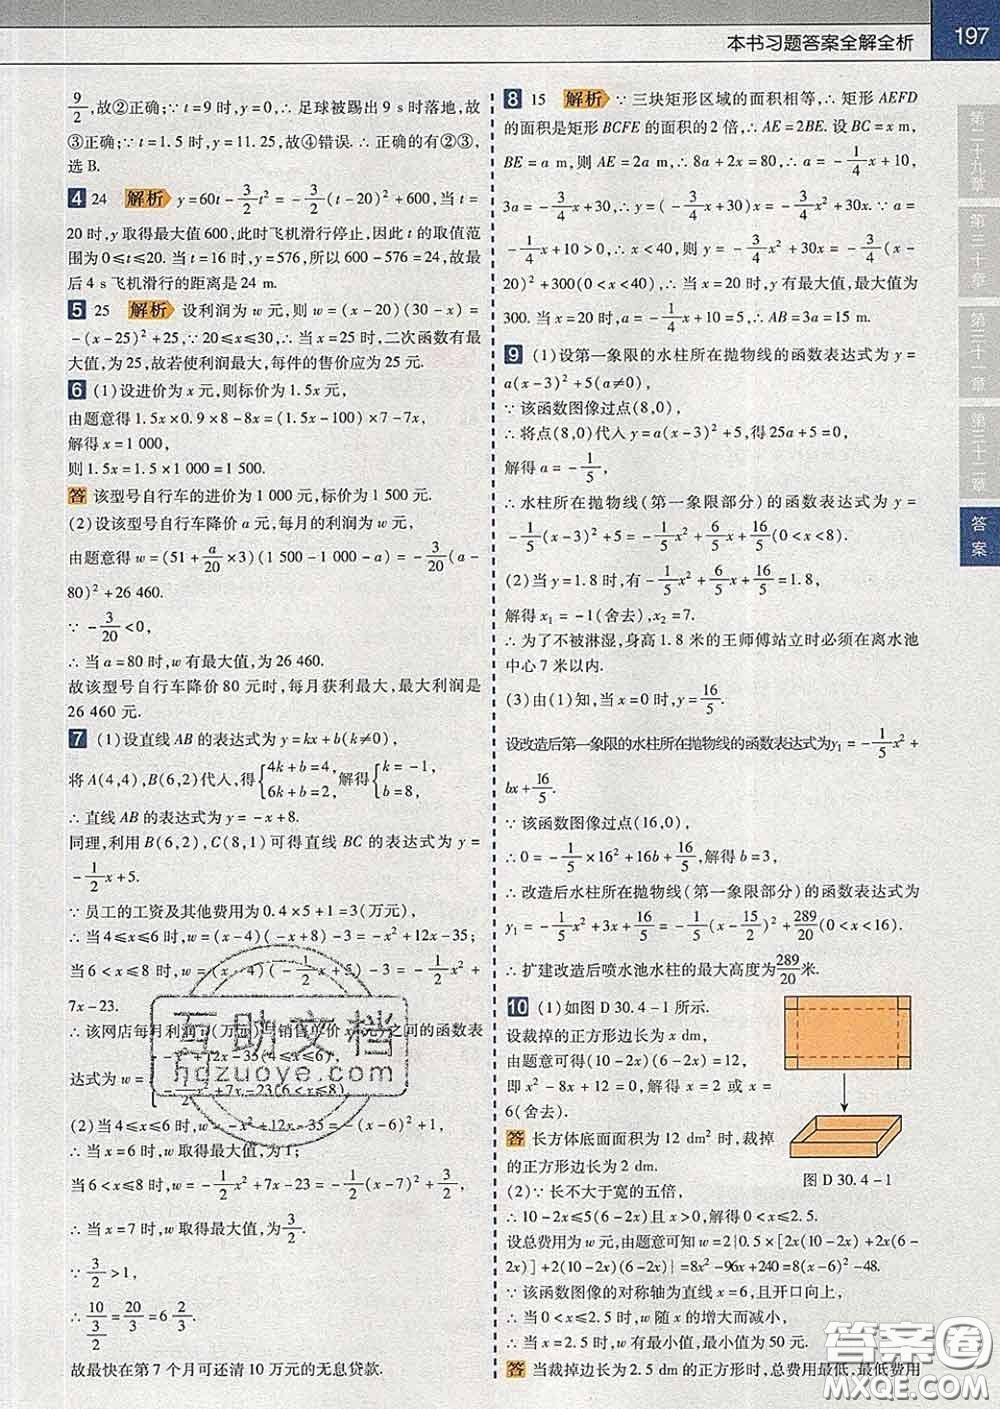 本书习题答案全解全析
197
9/2,故②正确;∵t=9时,y=0,∴足球被踢出9 s时落地,故
③正确;∵t=1.5时,y=11.25,故④错误.∴正确的有②③,
选B.
4 24 解析 y=60t-3/2t²=-3/2(t-20)²+600,当t=
20时,y取得最大值600,此时飞机滑行停止,因此t的取值范
围为0≤t≤20.当t=16时,y=576,所以600-576=24,故最
后4 s飞机滑行的距离是24 m.
5 25 解析 设利润为w元,则w=(x-20)(30-x)=
-(x-25)²+25,∵20≤x≤30,∴当x=25时,二次函数有最
大值,为25,故若使利润最大,每件的售价应为25元.
6 (1)设进价为x元,则标价为1.5x元,
由题意得1.5x×0.9×8-8x=(1.5x-100)×7-7x,
解得x=1 000,
则1.5x=1.5×1 000=1 500.
答 该型号自行车的进价为1 000元,标价为1 500元.
(2)设该型号自行车降价a元,每月的利润为w元,
由题意得w=(51+a/20×3)(1 500-1 000-a)=-3/20(a-
80)²+26 460.
∵-3/20<0,
∴当a=80时,w有最大值,为26 460.
故该型号自行车降价80元时,每月获利最大,最大利润是
26 460元.
7 (1)设直线AB的表达式为y=kx+b(k≠0),
将A(4,4),B(6,2)代入,得{4k+b=4, 6k+b=2, 解得{k=-1, b=8,
∴直线AB的表达式为y=-x+8.
同理,利用B(6,2),C(8,1)可得直线BC的表达式为y=
-1/2x+5.
∵员工的工资及其他费用为0.4×5+1=3(万元),
∴当4≤x≤6时,w=(x-4)(-x+8)-3=-x²+12x-35;
当6<x≤8时,w=(x-4)(-1/2x+5)-3=-1/2x²+
7x-23.
∴该网店每月利润w(万元)与销售单价x(元)之间的函数表
达式为w={-x²+12x-35(4≤x≤6), -1/2x²+7x-23(6<x≤8).
(2)当4≤x≤6时,w=-x²+12x-35=-(x-6)²+1,
当x=6时,w取得最大值1.
当6<x≤8时,w=-1/2x²+7x-23=-1/2(x-7)²+3/2,
∴当x=7时,w取得最大值,为3/2.
∵3/2>1,
∴10/(3/2)=20/3=6 2/3,
故最快在第7个月可还清10万元的无息贷款.
8 15 解析 ∵三块矩形区域的面积相等,∴矩形AEFD
的面积是矩形BCFE的面积的2倍,∴AE=2BE.设BC=x m,
BE=a m,则AE=2a m,∴8a+2x=80,∴a=-1/4x+10,
3a=-3/4x+30,∴y=(-3/4x+30)x=-3/4x²+30x.∵a=
-1/4x+10>0,∴x<40,则y=-3/4x²+30x=-3/4(x-
20)²+300(0<x<40),∴当x=20时,y有最大值,最大值为
300.当x=20时,a=-1/4x+10=5,∴AB=3a=15 m.
9 (1)设第一象限的水柱所在抛物线的函数表达式为y=
a(x-3)²+5(a≠0),
∵该函数图像过点(8,0),
∴将点(8,0)代入y=a(x-3)²+5,得25a+5=0,
解得a=-1/5,
∴水柱所在抛物线(第一象限部分)的函数表达式为y=
-1/5(x-3)²+5=-1/5x²+6/5x+16/5(0<x<8).
(2)当y=1.8时,有-1/5x²+6/5x+16/5=1.8,
解得x₁=-1(舍去),x₂=7.
∴为了不被淋湿,身高1.8米的王师傅站立时必须在离水池
中心7米以内.
(3)由(1)知,当x=0时,y=16/5.
设改造后第一象限的水柱所在抛物线的函数表达式为y₁=-1/5x²+
bx+16/5.
∵该函数图像过点(16,0),
∴0=-1/5×16²+16b+16/5,解得b=3,
∴改造后水柱所在抛物线(第一象限部分)的函数表达式为
y₁=-1/5x²+3x+16/5=-1/5(x-15/2)²+289/20(0<x<16).
∴扩建改造后喷水池水柱的最大高度为289/20米.
10 (1)如图D 30.4-1所示.
设裁掉的正方形边长为x dm,
由题意可得(10-2x)(6-2x)=12,
即x²-8x+12=0,解得x=2或x=
6(舍去).
答 长方体底面面积为12 dm²时,裁掉
的正方形边长为2 dm.
图D 30.4-1
(2)∵长不大于宽的五倍,
∴10-2x≤5(6-2x)且x>0,解得0<x≤2.5.
设总费用为w元,由题意可知w=2{0.5×[2x(10-2x)+2x(6-
2x)]}+2(10-2x)(6-2x)=8x²-96x+240=8(x-6)²-48.
∵该函数图像的对称轴为直线x=6,且开口向上,
∴当0<x≤2.5时,w随x的增大而减小,
∴当x=2.5时,w有最小值,最小值为50元.
答 当裁掉边长为2.5 dm的正方形时,总费用最低,最低费用
第二十九章
第三十章
第三十一章
第三十二章
答案
互助文档
hdzuoye.com
答案圈
MXQE.COM